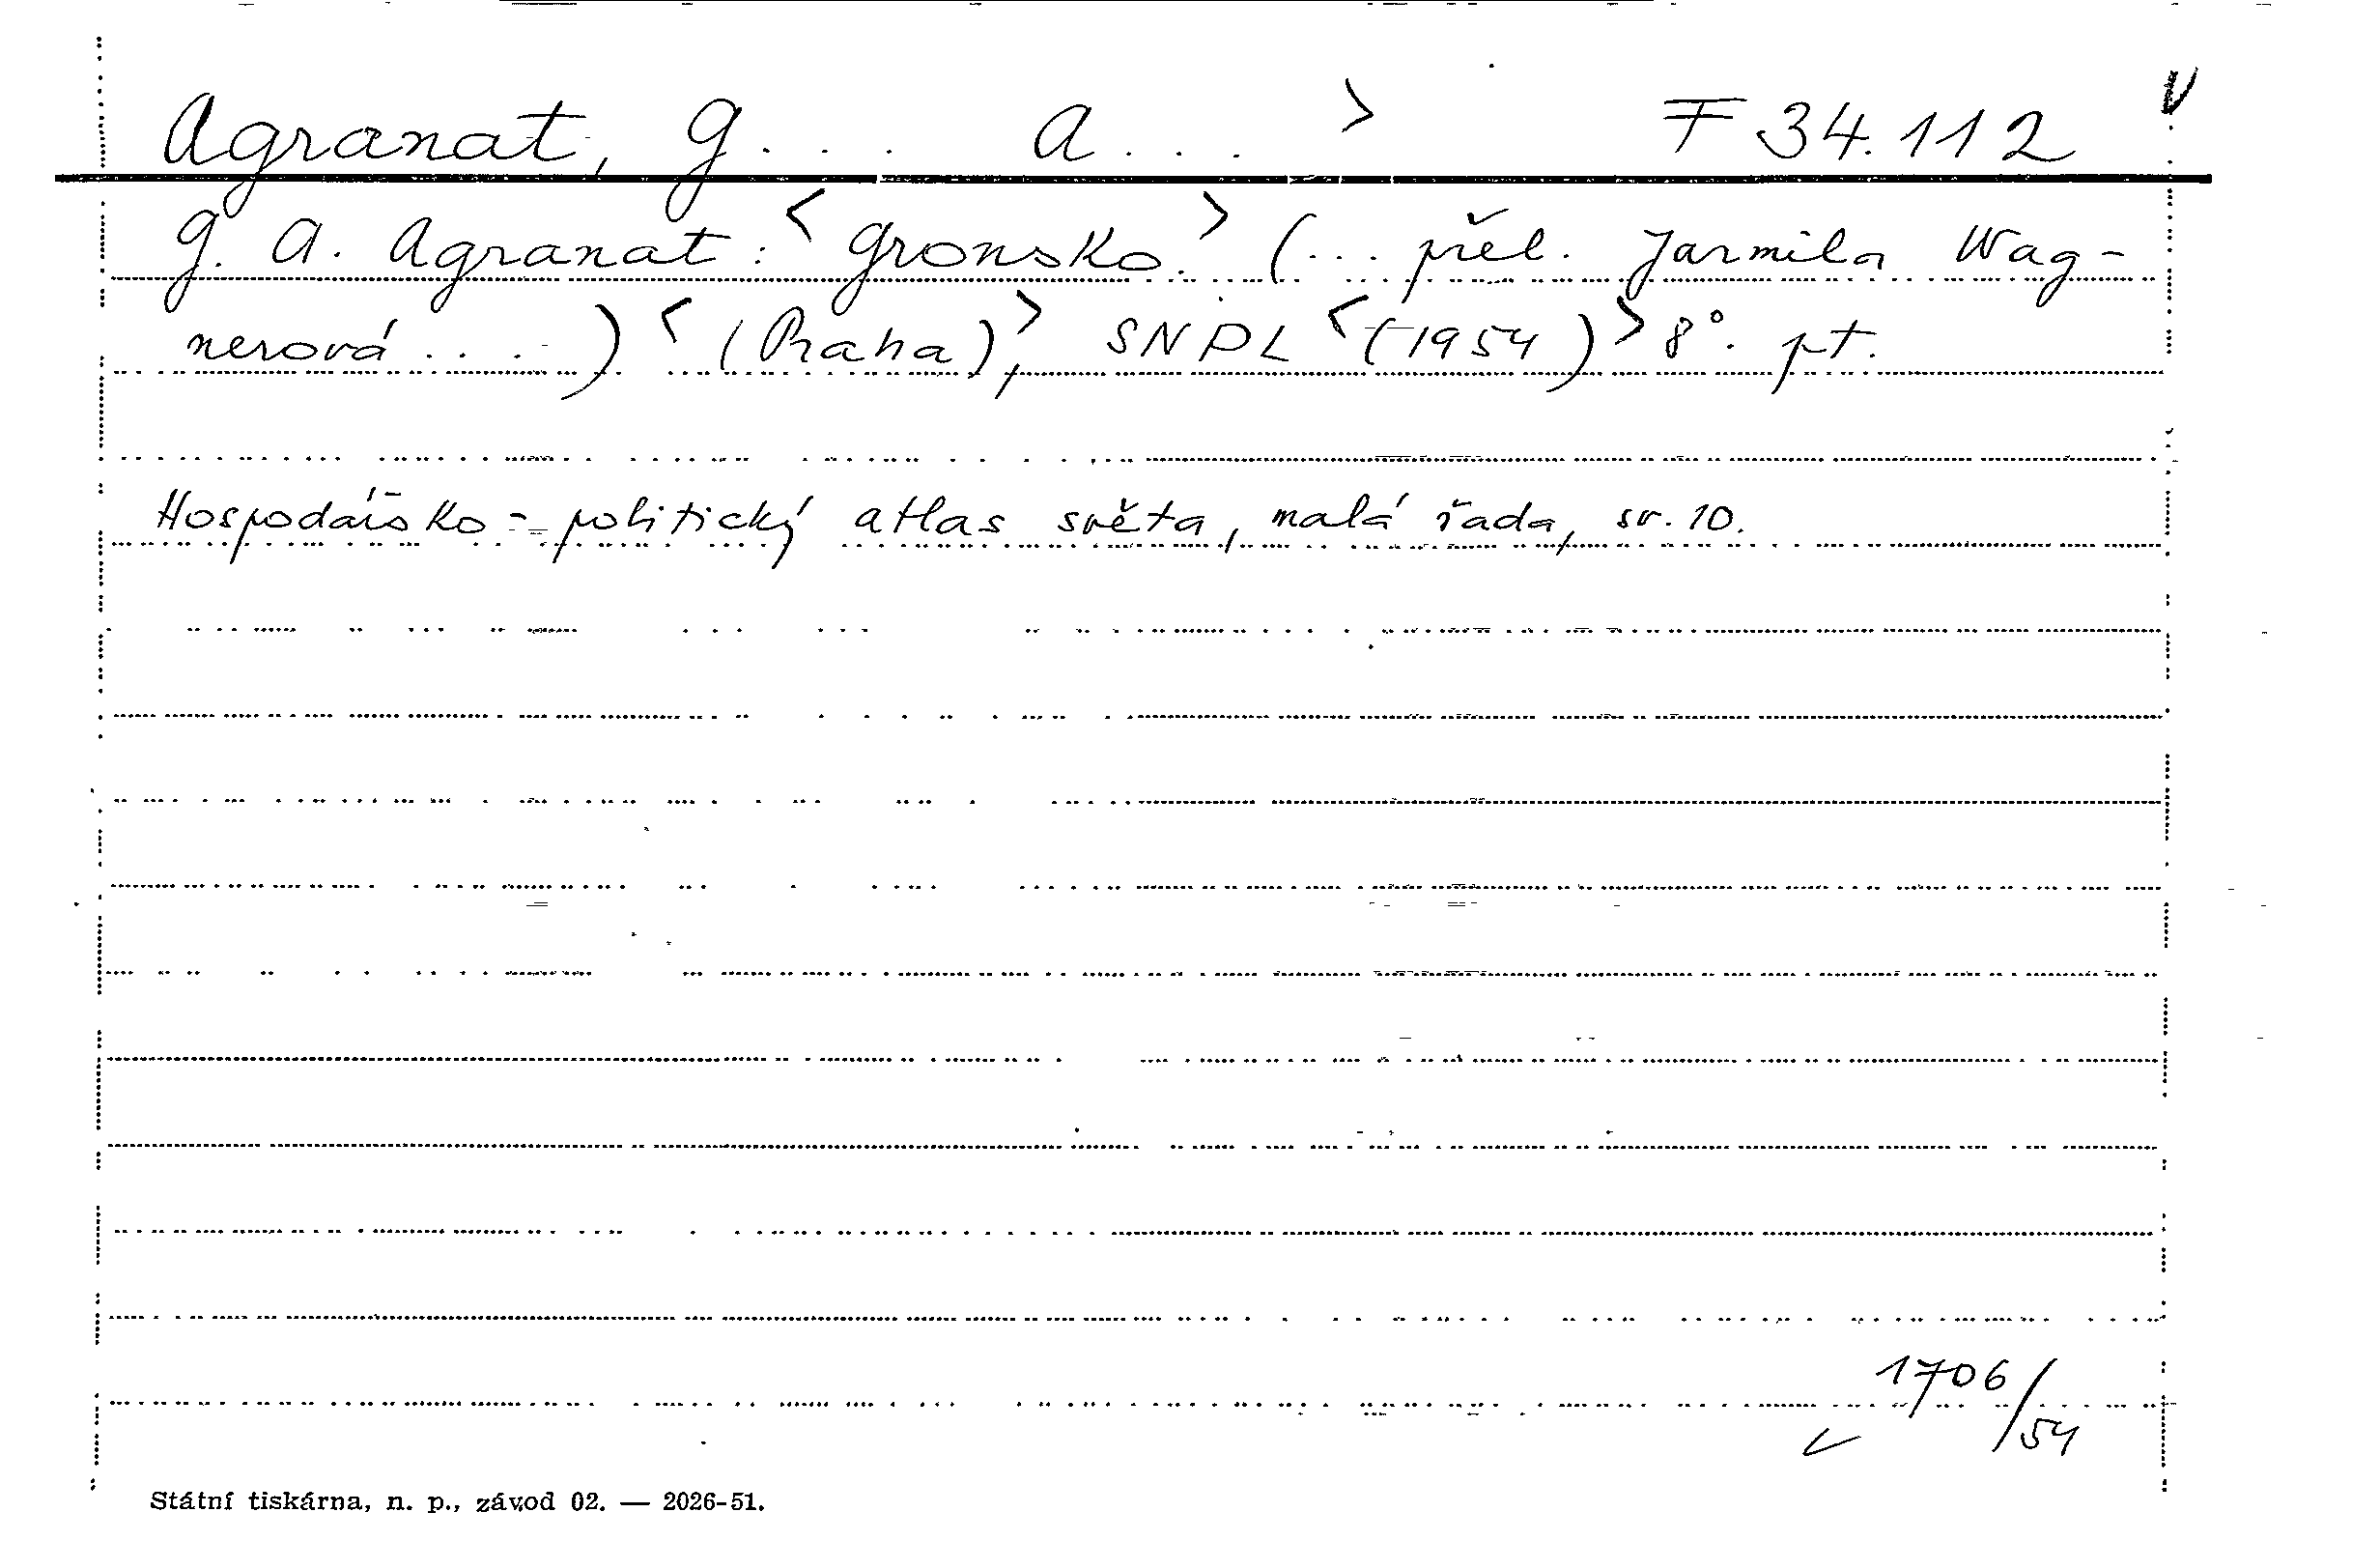 Agranat, G... A... > F 34.112
G. A. Agranat: <Gronsko.> (... přel. Jarmila Wag-
nerová ....) <(Praha),> SNPL <(1954)> 8°. pt.
Hospodářsko-politický atlas světa, malá řada, sv. 10.
1706/54
Státní tiskárna, n. p., závod 02. — 2026-51.